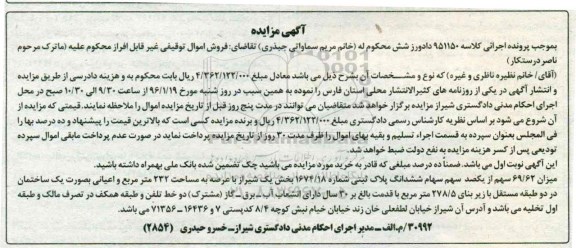 آگهی مزایده
بموجب پرونده اجرائی کلاسه ۹۵۱۱۵۰ دادورز شش محکوم له (خانم مریم سماواتی جیذری) تقاضای: فروش اموال توقیفی غیر قابل افراز محکوم علیه (ماترک مرحوم
ناصر درستکار)
(آقای/ خانم نظیره ناظری و غیره) که نوع و مشخصات آن بشرح ذیل می باشد معادل مبلغ ۴/۳۶۲/۱۲۲/۰۰۰ ریال بابت محکوم به و هزینه دادرسی از طریق مزایده
و انتشار آگهی در یکی از روزنامه های کثیرالانتشار محلی استان فارس را نموده به همین سبب در روز شنبه مورخ ۹۶/۱/۱۹ از ساعت ۹/۳۰ الی ۱۰/۳۰ صبح در محل
اجرای احکام مدنی دادگستری شیراز مزایده برگزار خواهد شد متقاضیان می توانند در مدت پنج روز قبل از تاریخ مزایده اموال را ملاحظه نمایند. قیمتی که مزایده از
آن شروع می شود بر اساس نظریه کارشناس رسمی دادگستری مبلغ ۴/۳۶۲/۱۲۲/۰۰۰ ریال و برنده مزایده کسی است که بالاترین قیمت را پیشنهاد و ده درصد بها را
فی المجلس بعنوان سپرده به قسمت اجراء تسلیم و بقیه بهای اموال را ظرف مدت ۳۰ روز از تاریخ مزایده پرداخت نماید در صورت عدم پرداخت مابقی اموال سپرده
تودیعی پس از کسر هزینه مزایده به نفع دولت ضبط خواهد شد.
این آگهی نوبت اول می باشد. ضمناً ده درصد مبلغی که قادر به خرید مورد مزایده می باشید چک تضمین شده بانک ملی بهمراه داشته باشید.
میزان ۶۹/۶۲ سهم از یکصد سهم سهام ششدانگ پلاک ثبتی شماره ۱۶۷۴/۱۸ بخش سه شیراز با عرصه به مساحت ۲۲۲ متر مربع و اعیانی بصورت یک ساختمان
در دو طبقه مستقل با زیر بنای ۲۷۸/۵ متر مربع با قدمت بالغ بر ۳۰ سال دارای انشعاب آب - برق - گاز (مشترک) دو خط تلفن و طبقه همکف در تصرف مالک و طبقه
اول تخلیه می باشد و آدرس آن شیراز خیابان لطفعلی خان زند خیابان خیام نبش کوچه ۸/۴ کدپستی ۷ و ۱۶۴۳۶ - ۷۱۳۵۶ می باشد.
۳۰۹۹۲/ م.الف - مدیر اجرای احکام مدنی دادگستری شیراز - خسرو حیدری (۲۸۵۴)